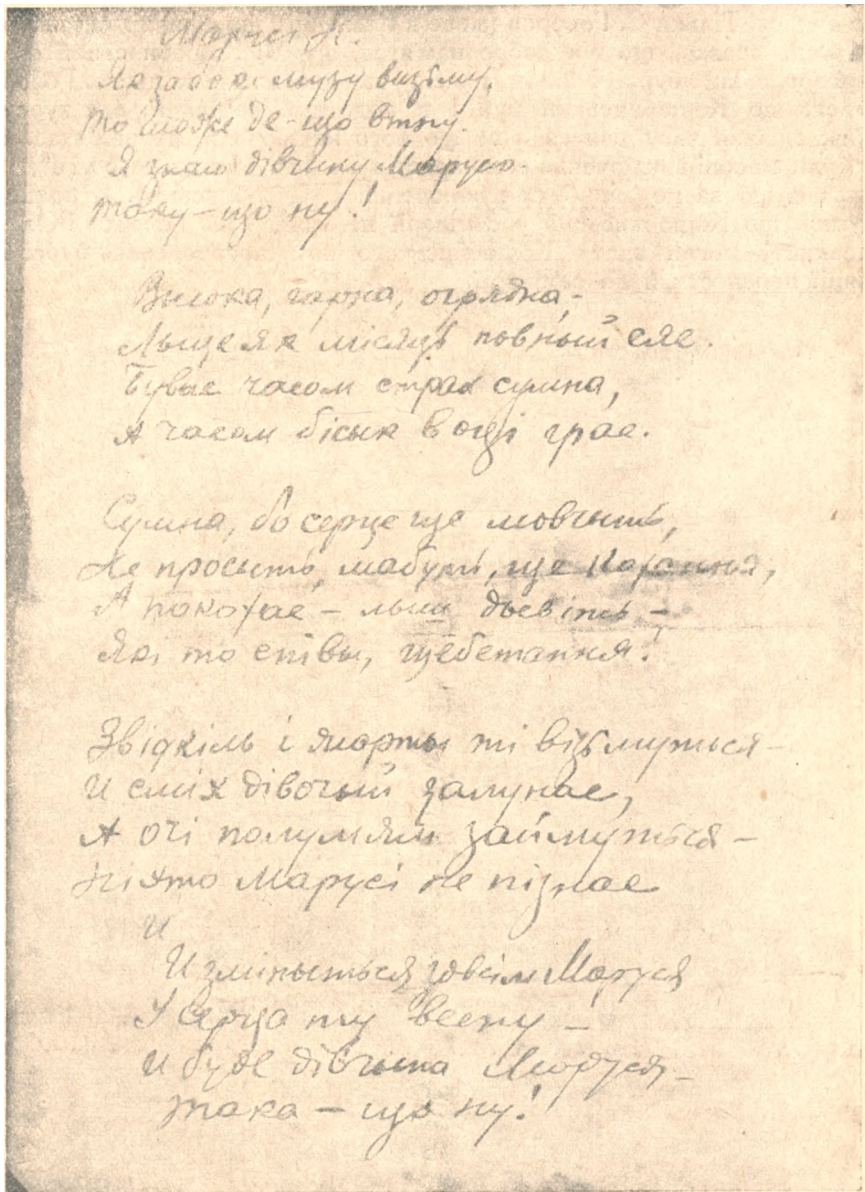 Марусі К.
Як за боки музу візьму,
То може де-що втну.
Я знаю дівчину Марусю
таку – що ну!
Высока, гарна, огрядна, –
Лыце як місяць повный сяе.
Бувае часом страх сумна,
А часом бісык в оці грае.
Сумна, бо серце ще мовчыть,
Не просыть, мабуть, ще кохання,
А покохае – лыш дывіть –
Які то співы, щебетання!
Звідкіль і жарты ті візьмуться –
И сміх дівочый залунае,
А очі полумъям займуться –
Ніхто Марусі не пізнае
И
И зміныться зовсім Маруся
У серця ту весну –
И буде дівчына Маруся –
Така – що ну!